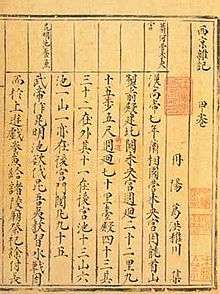 西京雜記 四卷
丹陽 葛洪稚川 集
蕭何營未央宮
漢高帝七年蕭相國營未央宮因龍首山
製前殿建北闕未央宮週迴二十二里九
十五步五尺週迴七十里臺殿四十三其
三十二在外其十一在後宮池十三山六
池一山一亦在後宮門闥凡九十五
昆明池養魚
武帝作昆明池欲伐昆吾夷教習水戰因
而於上遊戲養魚給諸陵廟祭祀餘付長